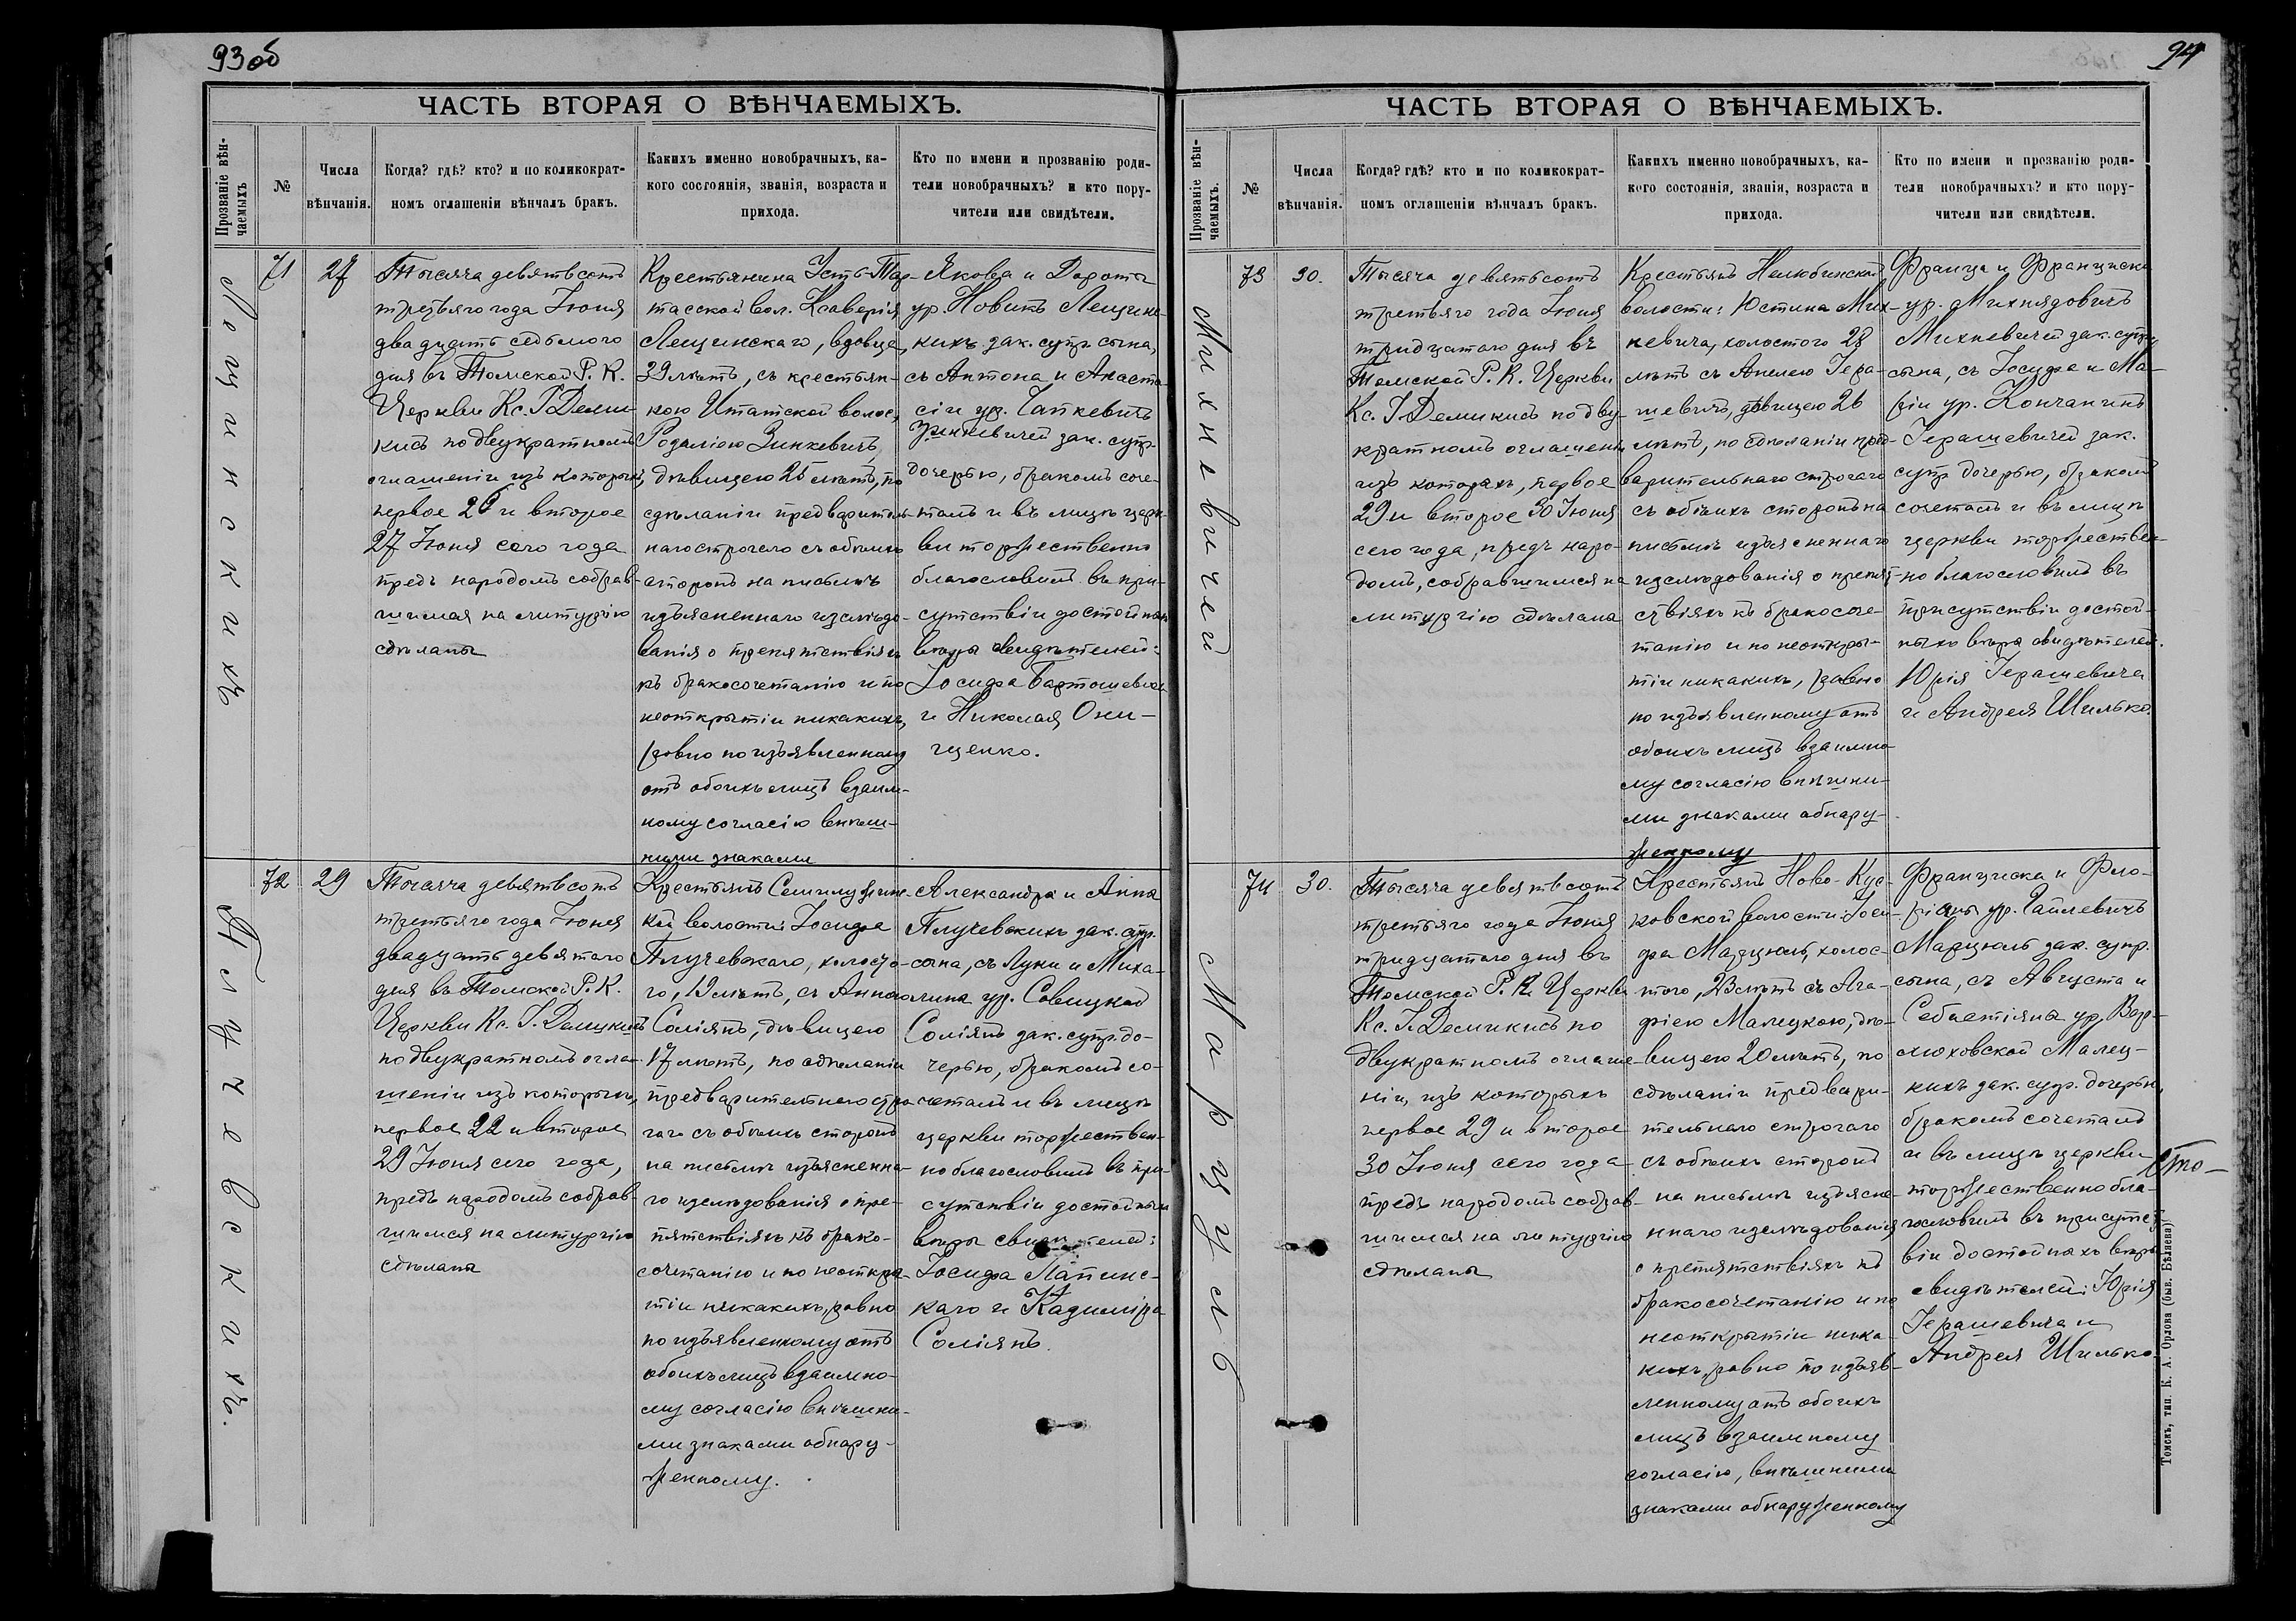 93 об
ЧАСТЬ ВТОРАЯ О ВѢНЧАЕМЫХЪ.
Прозваніе вѣн-
чаемыхъ
№
Числа
вѣнчанія.
Когда? гдѣ? кто? и по коликократ-
номъ оглашеніи вѣнчалъ бракъ.
Какихъ именно новобрачныхъ, ка-
кого состоянія, званія, возраста и
прихода.
Кто по имени и прозванію роди-
тели новобрачныхъ? и кто пору-
чители или свидѣтели.
Лещинскихъ
71
27
Тысяча девятьсотъ
третьяго года Іюня
двадцать седьмого
дня въ Томской Р. К.
Церкви Кс. І. Деми
кисъ по двукратномъ
оглашеніи изъ которыхъ,
первое 26 и второе
27 Іюня сего года
предъ народомъ собрав-
шимся на литургію
сдѣланы
Крестьянина Усть-Тар-
тасской вол. Ксаверія
Лещинскаго, вдовца,
39 лѣтъ, съ крестьян-
кою Итатской волос,
Розаліею Зинкевичъ,
дѣвицею 25 лѣтъ, по
сдѣланіи предваритель-
наго строгаго съ обѣихъ
сторонъ на письмѣ
изъясненнаго изслѣдо-
ванія о препятствіяхъ
къ бракосочетанію и по
неоткрытіи никакихъ,
равно по изъявленному
отъ обоихъ лицъ взаим-
ному согласію внѣш-
ними знаками
Якова и Дороты
ур. Новикъ Лещинс-
кихъ зак. супр. сына,
съ Антона и Анаста-
сіи ур. Чапкевичъ
Зинкевичей зак. супр.
дочерью, бракомъ соче-
талъ и въ лицѣ церк-
ви торжественно
благословилъ въ при-
сутствіи достойныхъ
вѣры свидѣтелей:
Іосифа Бартошевича
и Николая Они-
щенко.
Плучевскихъ.
72
29
Тысяча девятьсотъ
третьяго года Іюня
двадцать девятаго
дня въ Томской Р. К.
Церкви Кс. І. Демикисъ
по двукратномъ огла-
шеніи изъ которыхъ,
первое 22 и второе
29 Іюня сего года,
предъ народомъ собрав-
шимся на литургію
сдѣлана
Крестьянъ Семилужене-
кой волости: Іосифа
Плучевскаго, холосто-
го, 19 лѣтъ, съ Анною
Соліянъ, дѣвицею
17 лѣтъ, по сдѣланіи
предварительнаго стро
гаго съ обѣихъ сторонъ
на письмѣ изъясненна-
го изслѣдованія о пре-
пятствіяхъ къ брако-
сочетанію и по неоткры-
тіи никакихъ, равно
по изъявленному отъ
обоихъ лицъ взаимно-
му согласію внѣшни-
ми знаками обнару-
женному.
Александра и Анна
Плучевскихъ зак. супр.
сына, съ Луки и Миха-
лина ур. Савицкой
Соліянъ зак. супр. до-
черью, бракомъ со-
четалъ и въ лицѣ
церкви торжествен-
но благословилъ въ при-
сутствіи достойныхъ
вѣры свидѣтелей:
Іосифа Лапинс-
каго и Казиміра
Соліянъ.
94
ЧАСТЬ ВТОРАЯ О ВѢНЧАЕМЫХЪ.
Прозваніе вѣн-
чаемыхъ.
№
Числа
вѣнчанія.
Когда? гдѣ? кто и по коликократ-
номъ оглашеніи вѣнчалъ бракъ.
Какихъ именно новобрачныхъ, ка-
кого состоянія, званія, возраста и
прихода.
Кто по имени и прозванію роди-
тели новобрачныхъ? и кто пору-
чители или свидѣтели.
Михневичей
73
30.
Тысяча девятьсотъ
третьяго года Іюня
тридцатаго дня въ
Томской Р. К. Церкви
Кс. І. Демикисъ по дву-
кратномъ оглашеніи
изъ которахъ, первое
29 и второе 30 Іюня
сего года, предъ наро-
домъ, собравшимся на
литургію сдѣлана
Крестьянъ Нелюбинской
волости: Юстина Мих-
невича, холостого 28
лѣтъ съ Анелею Гера-
шевичъ, дѣвицею 26
лѣтъ, по сдѣланіи пред-
варительнаго строгаго
съ обѣихъ сторонъ на
письмѣ изъясненнаго
изслѣдованія о препят-
ствіяхъ къ бракосоче-
танію и по неоткры-
тіи никакихъ, равно
по изъявленному отъ
обоихъ лицъ взаимно-
му согласію внѣшни-
ми знаками обнару-
женному
Франца и Франциски
ур. Михнядовичъ
Михневичей зак. супр.
сына, съ Іосифа и Ма-
ріи ур. Кончанинъ
Герашевичей зак.
супр. дочерью, бракомъ
сочеталъ и въ лицѣ
церкви торжествен-
но благословилъ въ
присутствіи достой-
ныхъ вѣры свидѣтелей.
Юрія Герашевича
и Андрея Шилько.
Марцуль
74
30.
Тысяча девятьсотъ
третьяго года Іюня
тридцатаго дня въ
Томской Р. К. Церкви
Кс. І. Демикисъ по
двукратномъ оглаше
ніи, изъ которыхъ
первое 29 и второе
30 Іюня сего года
предъ народомъ собрав-
шимся на литургію
сдѣланы
Крестьянъ Ново-Кус-
ковской волости: Іоси-
фа Марцюль, холос-
того, 23 лѣтъ съ Ага-
фіею Малецкою, дѣ-
вицею 20 лѣтъ, по
сдѣланіи предвари-
тельнаго строгаго
съ обѣихъ сторонъ
на письмѣ изъясне-
ннаго изслѣдованія
о препятствіяхъ къ
бракосочетанію и по
неоткрытіи ника-
кихъ, равно по изъяв-
ленному отъ обоихъ
лицъ взаимному
согласію, внѣшними
знаками обнаруженному
Франциска и Фло-
ріаны ур. Гайлевичъ
Марцюль зак. супр.
сына, съ Августа и
Себастіяна ур. Вар-
Малец-
кихъ зак. супр. дочерью,
бракомъ сочеталъ
и въ лицѣ церкви
торжественно бла-
гословилъ въ присутс-
віи достойнахъ вѣры
свидѣтелей: Юрія
Герашевича и
Андрея Шилько.
Томскъ, тип. К. А. Орлова (быв. Бѣляева)